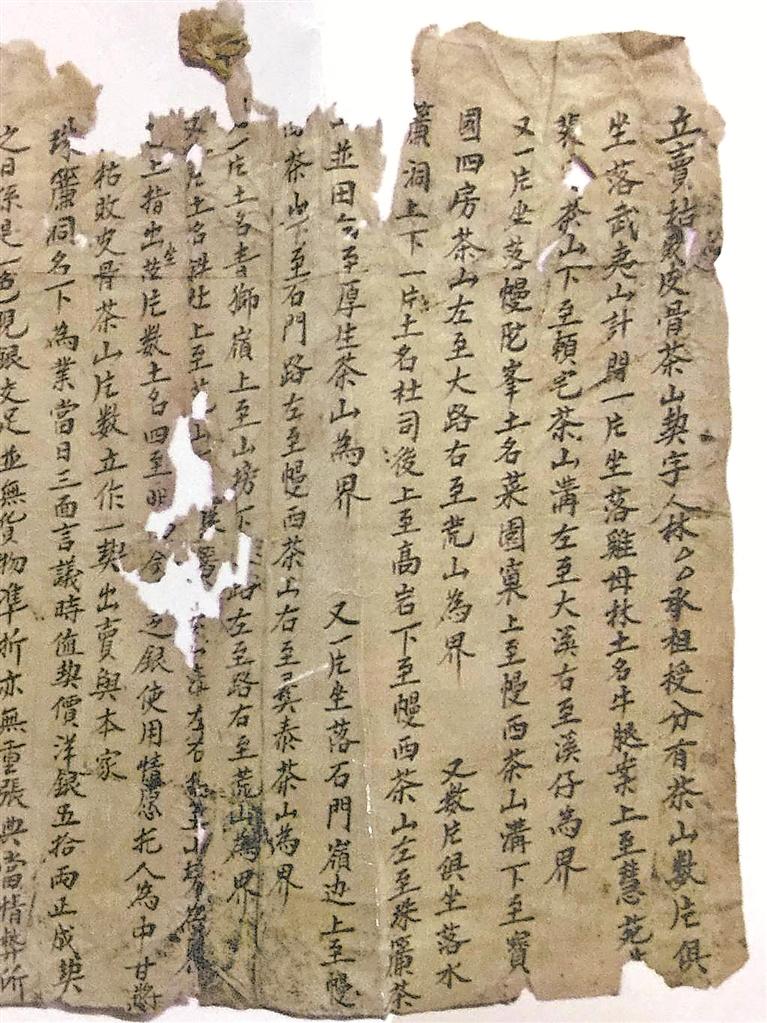 立賣枯敗皮骨茶山契字人林厶厶承祖授分有茶山數片俱
坐落武夷山計開一片坐落雞母林土名牛腿窠上至慧苑
茶山下至賴宅茶山溝左至大溪右至溪仔為界
又一片坐落幔陀峯土名菜園窠上至幔西茶山溝下至寶
國四房茶山左至大路右至荒山為界 又數片俱坐落水
簾洞上下一片土名杜司後上至高岩下至幔西茶山左至珠簾茶
並田 至厚生茶山為界 又一片坐落石門嶺边上至幔
茶山下至石門路左至幔西茶山右至奚泰茶山為界
一片土名青獅嶺上至山塝下 路左至路右至荒山為界
又 片土名 上至荒山 左右
上指出坐落片數土名四至 今 乏銀使用情愿托人為中甘將
枯敗皮骨茶山片數立作一契出賣與本家
珠簾洞名下為業當日三面言議時值契價洋銀五拾兩正成契
之日係是一色現銀交足並無貨物準折亦無重張典當情弊所